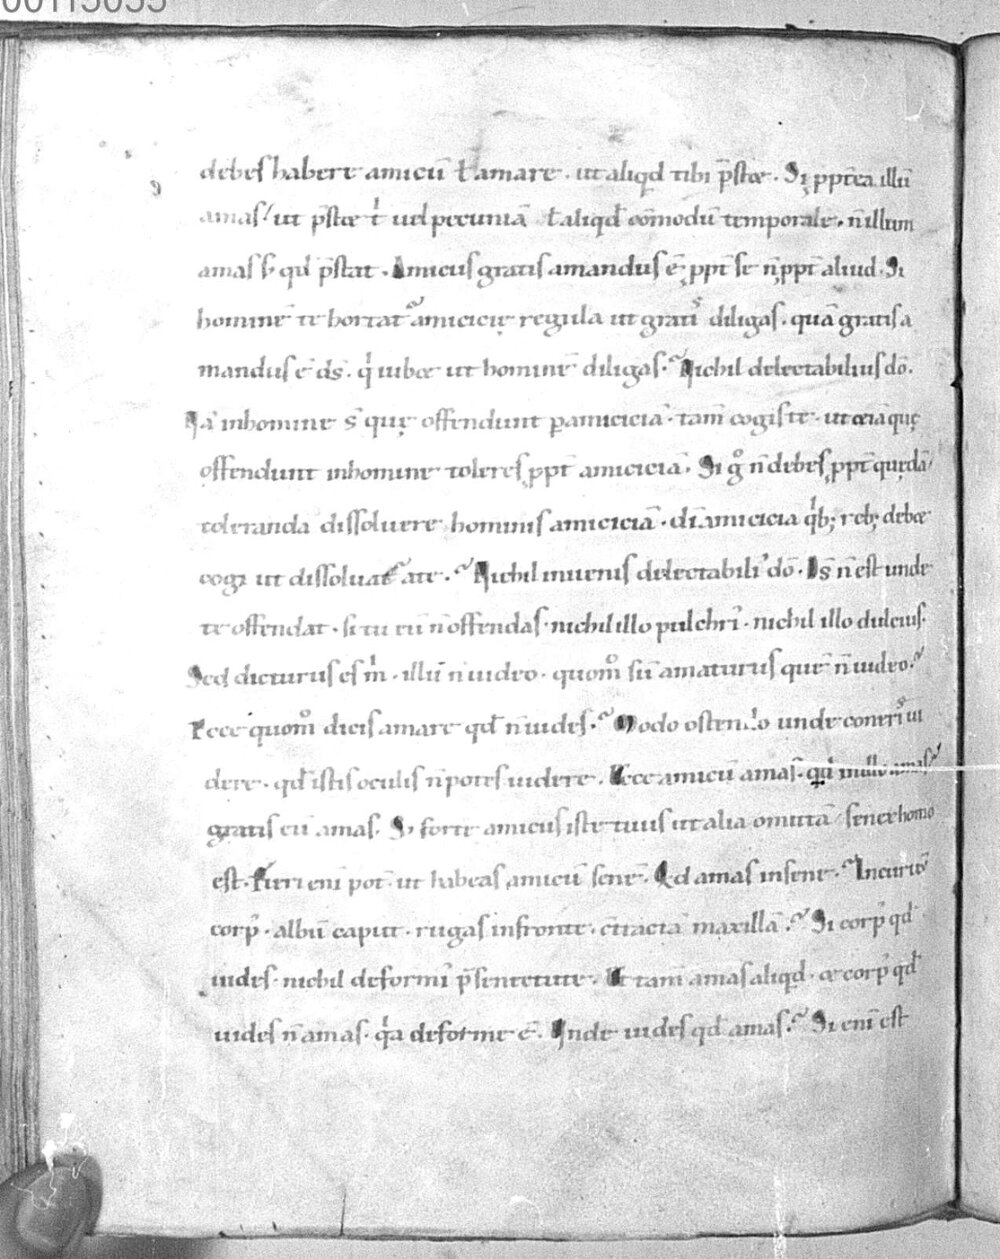 00115055
debes habere amicū ł amare. ut aliqd tibi p̄stæ. Si ꝓpt̄ea illū
amas / ut p̄stæ t̍ uel pecuniā ł aliqd̄ cōmodū temporale, ñ illum
amas s; qd̍ p̄stat. Amicus gratis amandus ē, ꝓpt̄ se ñ ꝓpt̄ aliud. Si
hominē te hortat᷑ amicicię regula ut gratis diligas. quā gratis a
mandus ē d̄s. q̍ iubæ ut hominē diligas. Nichil delectabilius dō.
Nā in homine s̄ quę offendunt ꝑ amiciciā. tam̄ cogis te. ut œia quę
offendunt in homine toleres ꝓpt̄ amiciciā. Si gͦ ñ debes ꝓpt̄ quędā
toleranda dissoluere hominis amiciciā. dī amicicia q̍b; reb; debæ
cogi ut dissoluat᷑ a te. Nichil inuenis delectabili᷒ dō. Is ñ est unde
te offendat. si tu eū ñ offendas. nichil illo pulchri᷒. nichil illo dulcius.
Sed dicturus es m̍. illū ñ uideo. quomͦ sū amaturus quē ñ uideo.
Ecce quomͦ dicis amare qd̄ ñ uides. Modo ostendo unde coneris ui
dere. qd̄ istis oculis ñ potes uidere. Ecce amicū amas. qd̄ in illo amas
gratis eū amas. Si forte amicus iste tuus ut alia omittā senex homo
est. Fieri eni pot̄. ut habeas amicū senē. Qd amas in sene. Incuruū
corp᷒. albū caput. rugas in fronte. c̄tractā maxillā. Si corp᷒ qd̄
uides. nichil deformi᷒ p̄ senectute. Et tam̄ amas aliqd. æ corp᷒ qd̄
uides ñ amas. q̍a deforme ē. Unde uides qd̄ amas. Si eni est